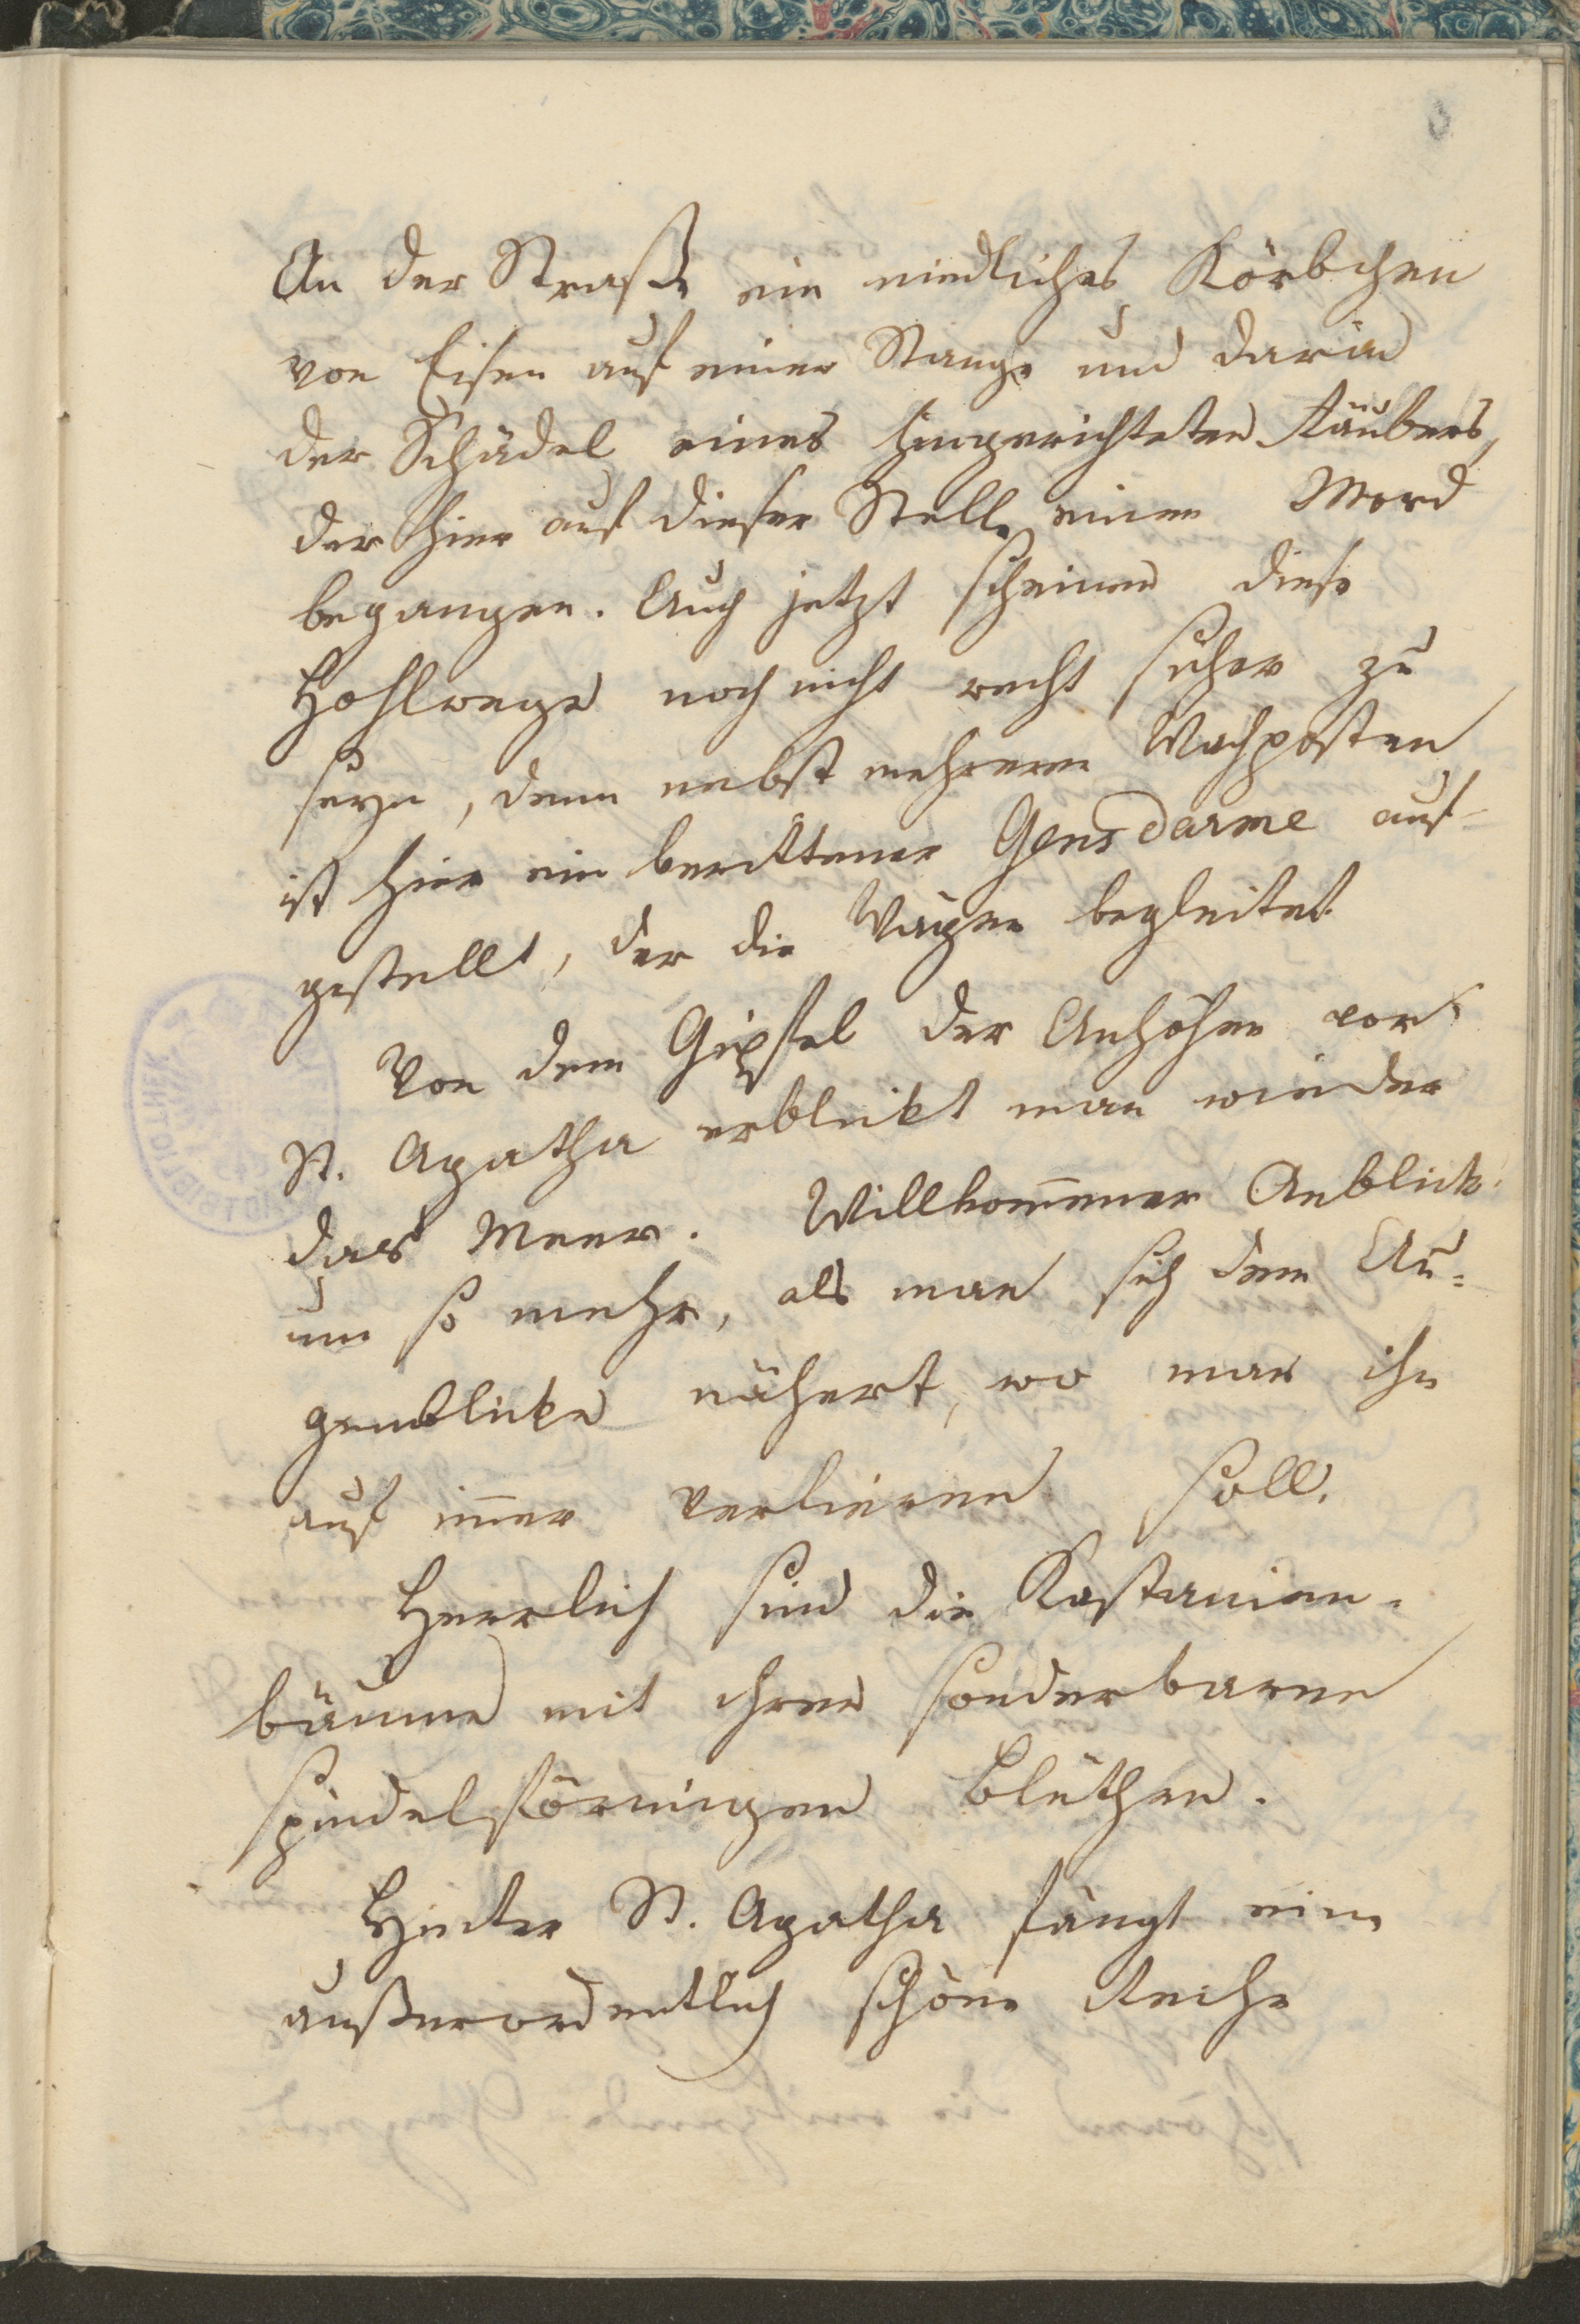 An der Straße ein niedliches Körbchen
von Eisen auf einer Stange und darin
der Schädel eines hingerichteten Räubers,
der hier auf dieser Stelle einen Mord
begangen. Auch jetzt scheinen diese
Hohlwege noch nicht recht sicher zu
seyn, denn nebst mehreren Wachposten
ist hier ein berittener Gensdarme auf-
gestellt, der die Wägen begleitet.
Von dem Gipfel der Anhöhen vor
St. Agatha erblickt man wieder
das Meer. Willkom̅ener Anblick
um so mehr, als man sich dem Au=
genblicke nähert, wo man ihn
auf im̅er verlieren soll.
Herrlich sind die Kastanien-
bäume mit ihren sonderbaren
spindelförmigen Blüthen.
Hinter St. Agatha fängt eine
außerordentlich schöne Reihe